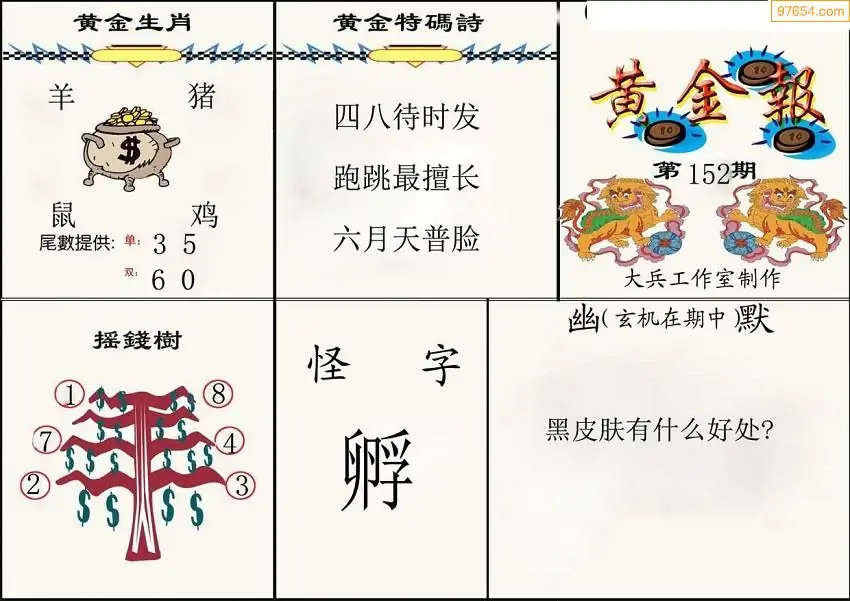 97654.com
黄金生肖
羊 猪
$
鼠 鸡
尾數提供: 单: 3 5
双: 6 0
黄金特碼詩
四八待时发
跑跳最擅长
六月天普脸
黄金報
10
10
10
第152期
大兵工作室制作
摇錢樹
① ⑧
$ $ $ $
$ $ $ $
⑦ ④
$ $ $ $ $ $
② ③
$ $ $ $
怪 字
孵
幽(玄机在期中)默
黑皮肤有什么好处?